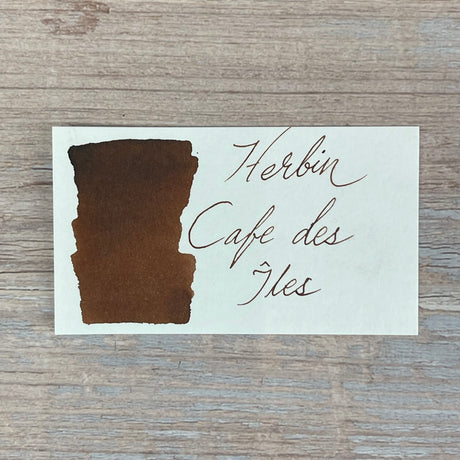 Herbin
Cafe des
Îles